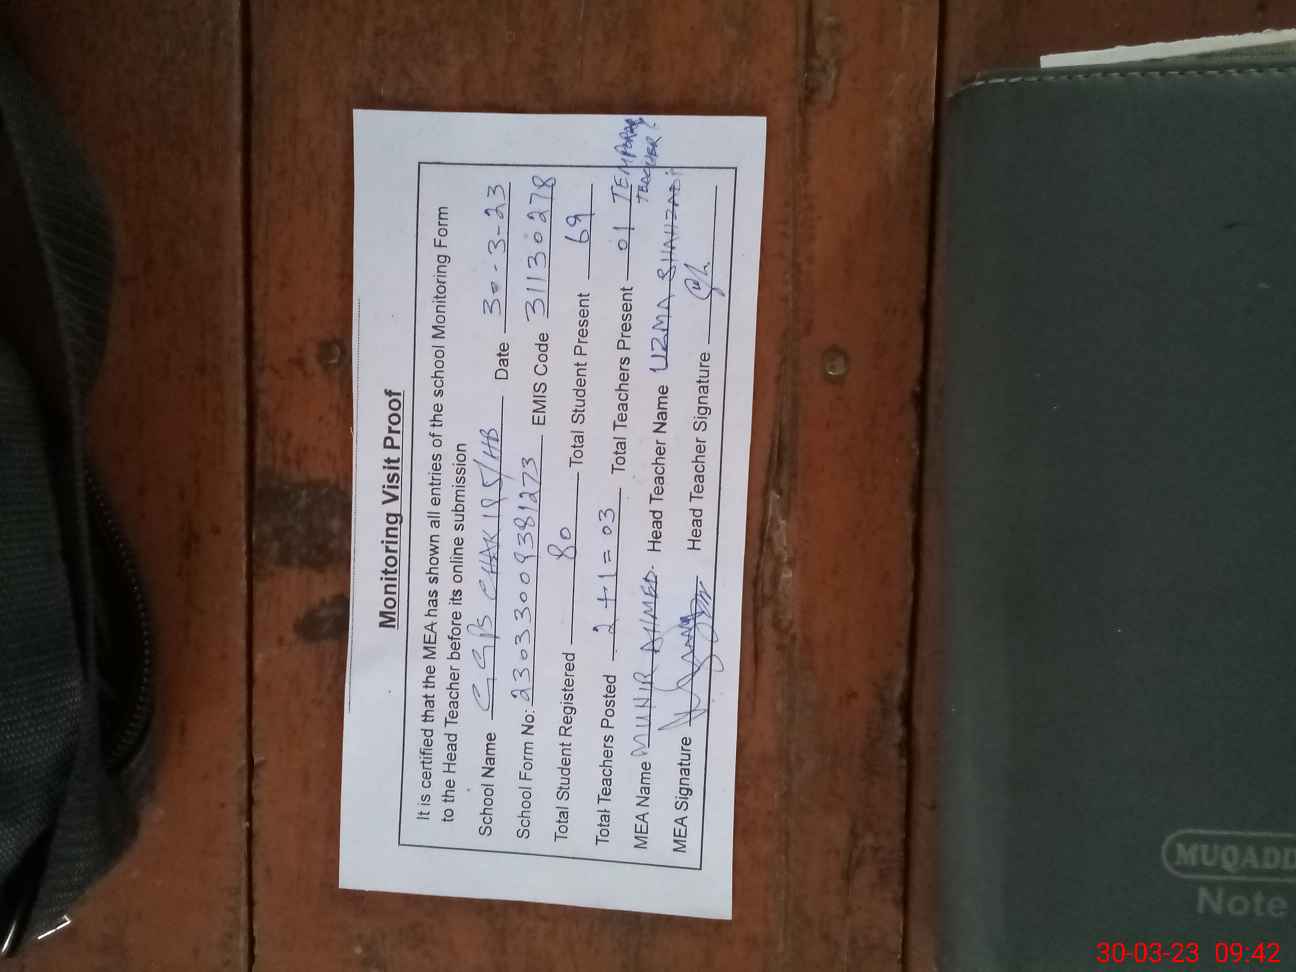 Monitoring Visit Proof
It is certified that the MEA has shown all entries of the school Monitoring Form
to the Head Teacher before its online submission
School Name GGPS CHAK 195/HB Date 30-3-23
School Form No: 23033009381273 EMIS Code 31130278
Total Student Registered 80 Total Student Present 69
Total Teachers Posted 2+1=03 Total Teachers Present 01 TEMPORARY TEACHER
MEA Name MUNIR AHMED. Head Teacher Name UZMA SHAHZADI
MEA Signature Head Teacher Signature
MUQADD
Note
30-03-23 09:42